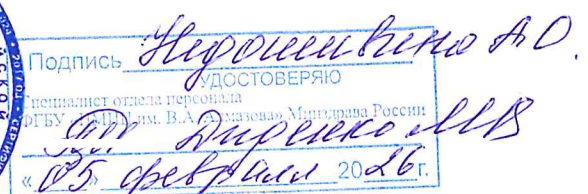 Подпись Недошивина А.О.
УДОСТОВЕРЯЮ
Специалист отдела персонала
ФГБУ «НМИЦ им. В.А. Алмазова» Минздрава России
Диденко М В
«05» февраля 2026 г.